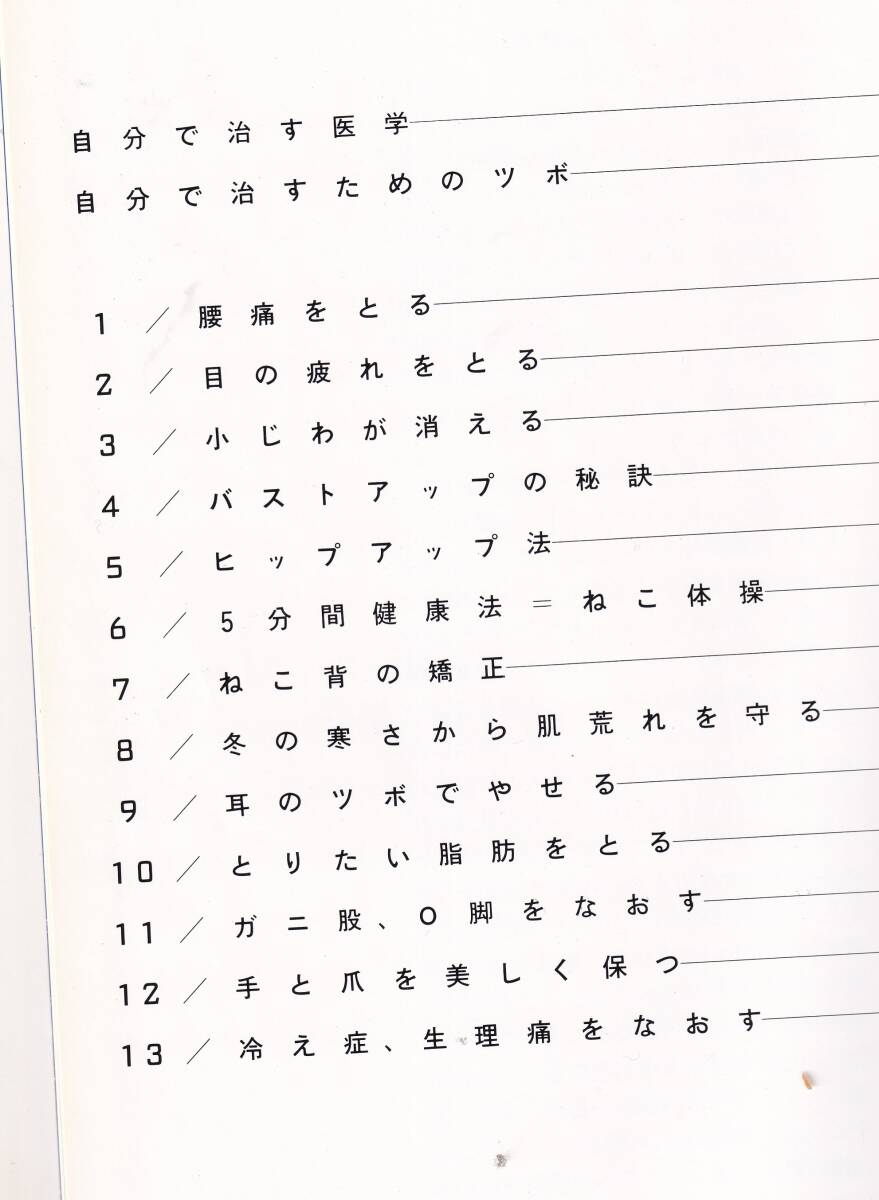 自分で治す医学
自分で治すためのツボ
1／腰痛をとる
2／目の疲れをとる
3／小じわが消える
4／バストアップの秘訣
5／ヒップアップ法
6／5分間健康法＝ねこ体操
7／ねこ背の矯正
8／冬の寒さから肌荒れを守る
9／耳のツボでやせる
10／とりたい脂肪をとる
11／ガニ股、O脚をなおす
12／手と爪を美しく保つ
13／冷え症、生理痛をなおす